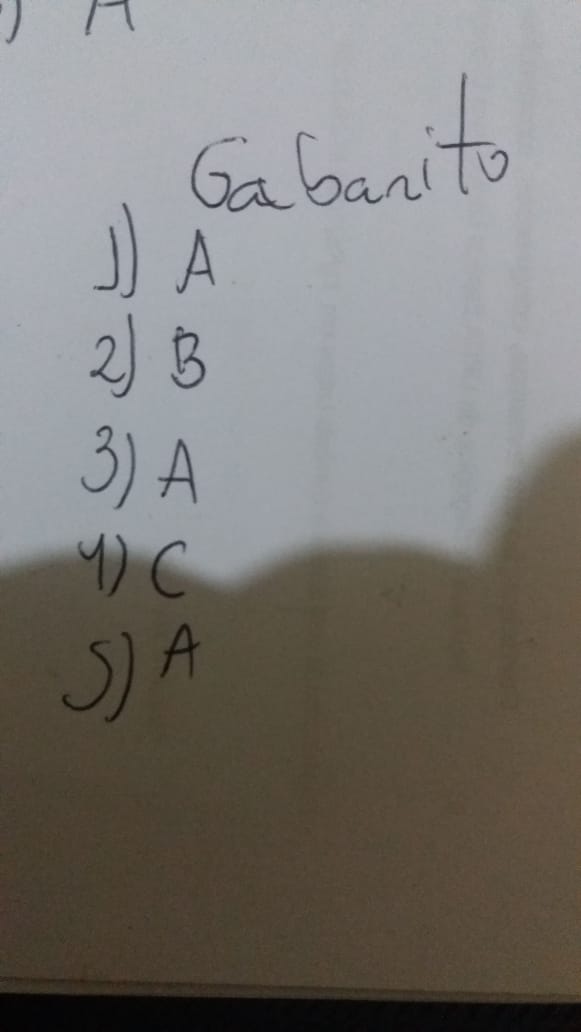 ) A
Gabarito
1) A
2) B
3) A
4) C
5) A